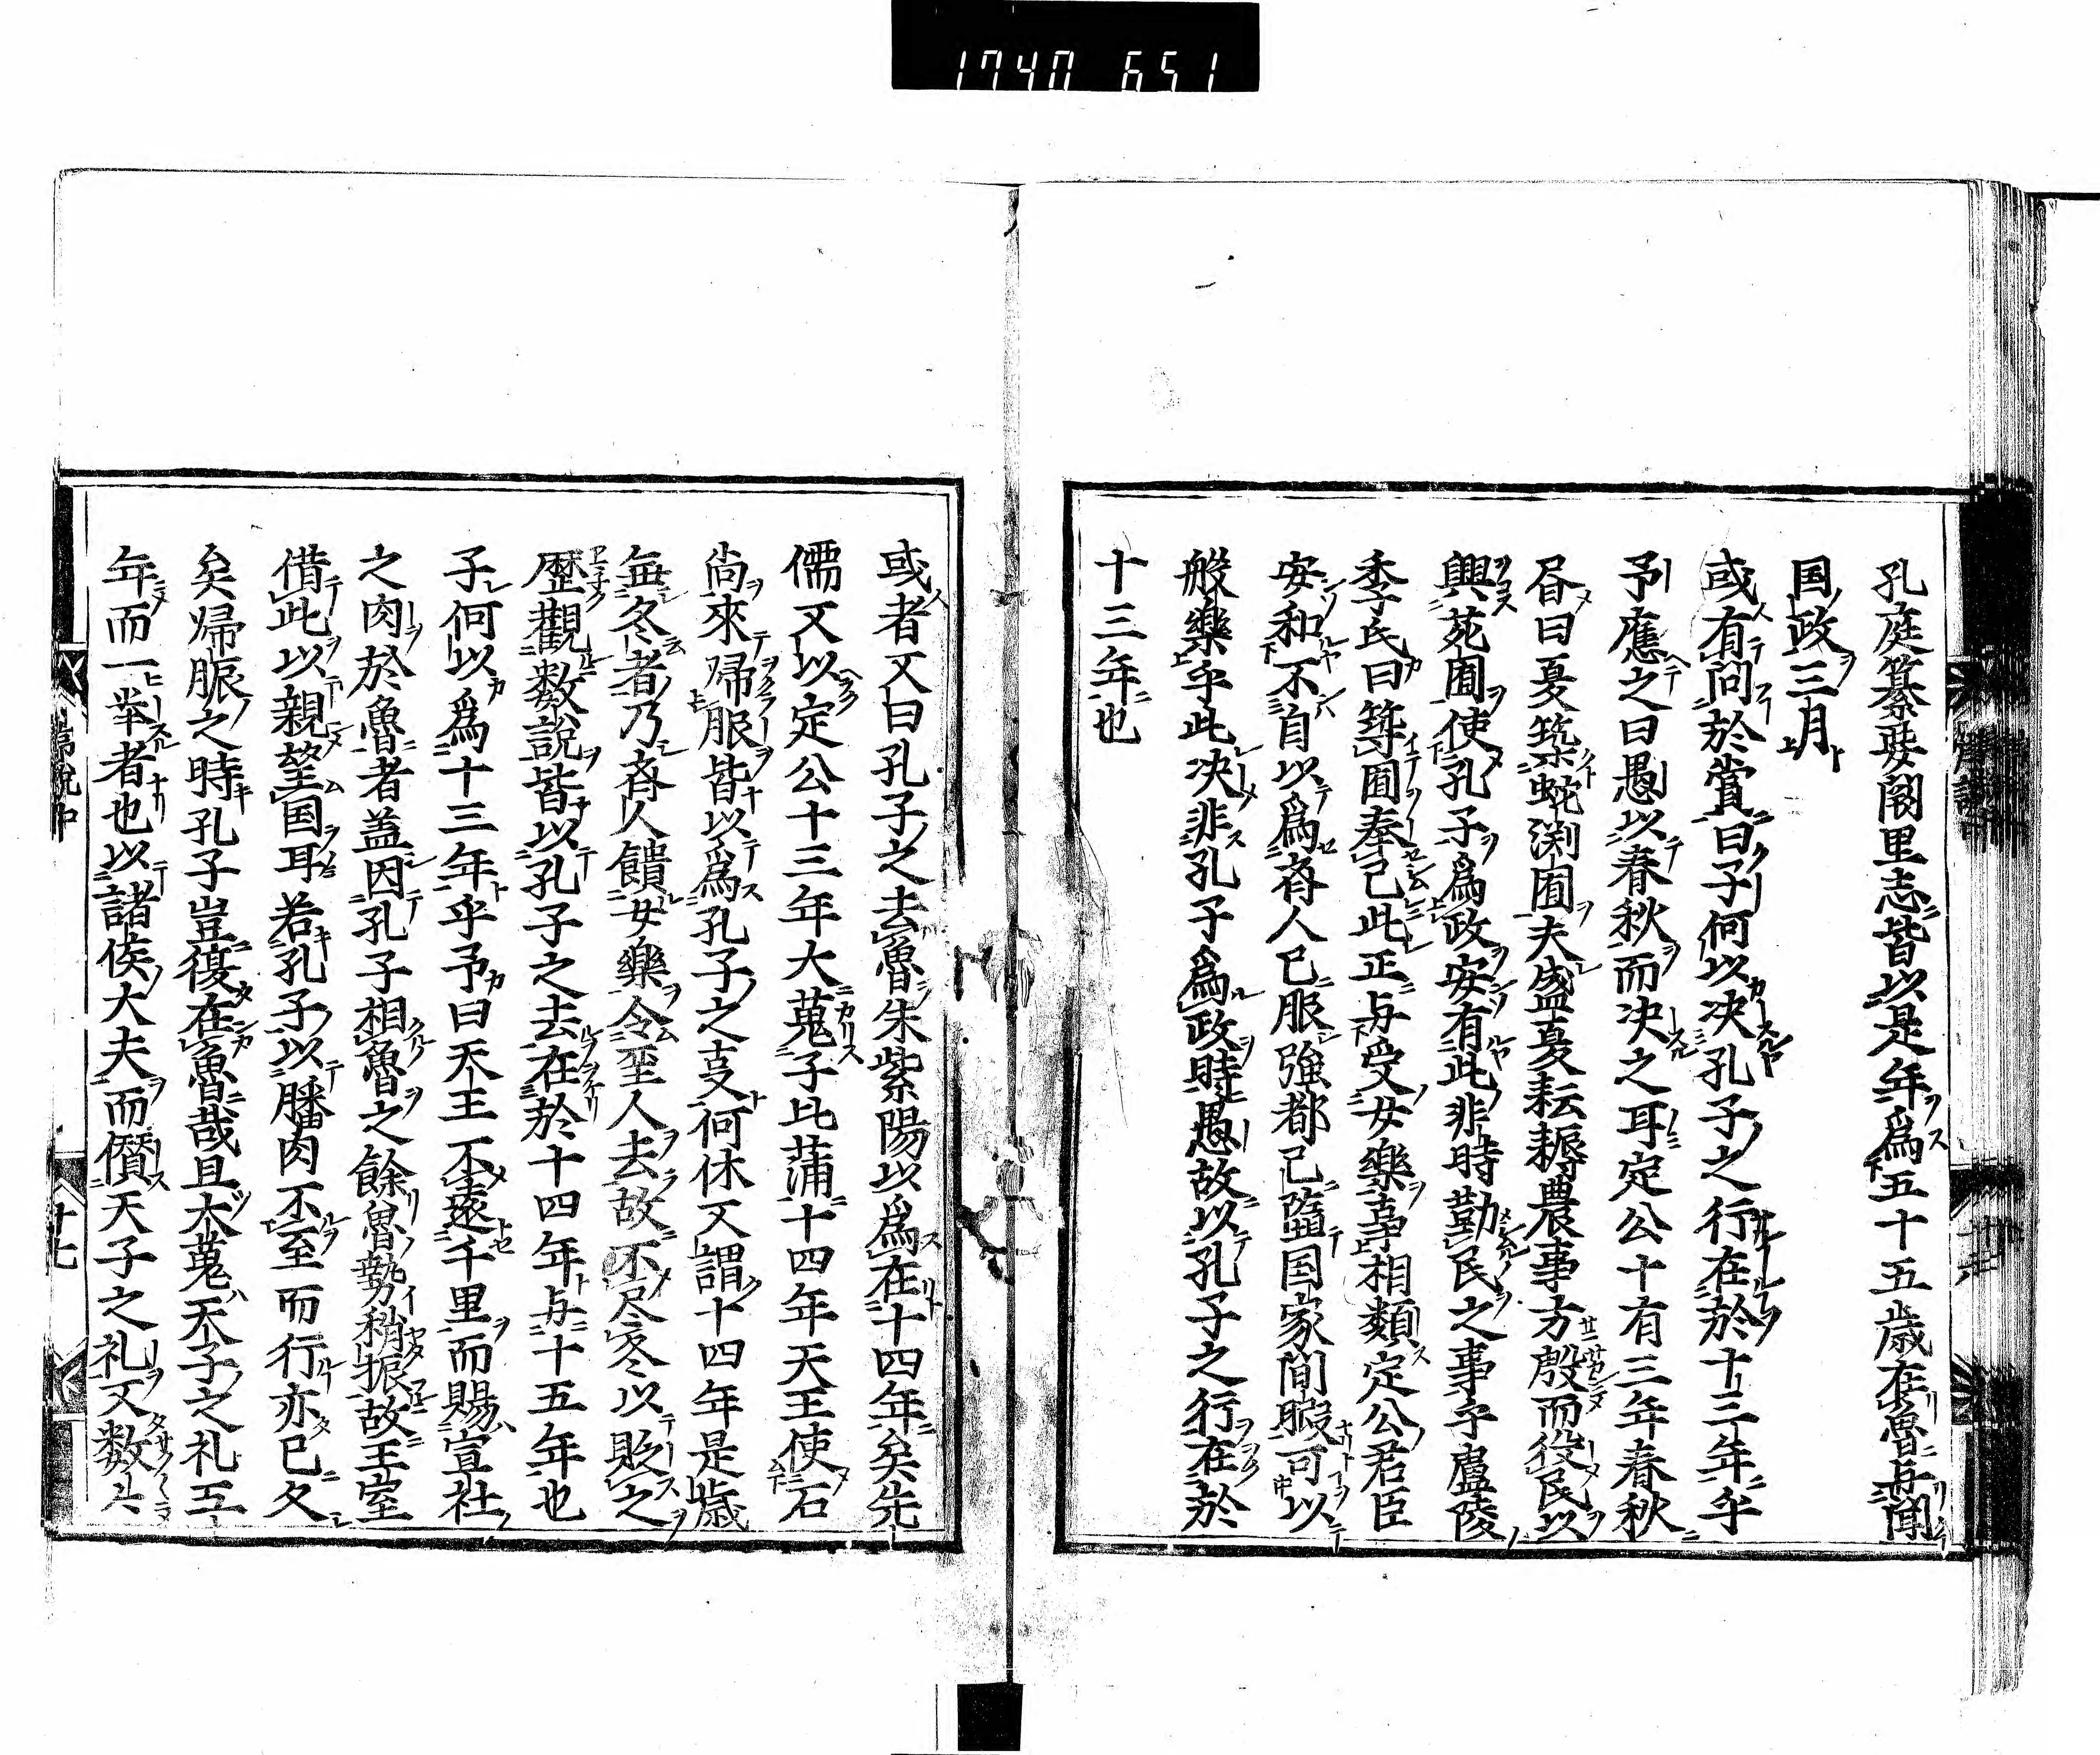 1740 651
孔庭纂要闕里志皆以是年為五十五歳在魯与聞
国政三月
或有問於嘗曰子何以决孔子之行在於十三年乎
予應之曰愚以春秋而决之耳定公十有三年春秋
昏曰夏筑蛇渕囿夫盛夏耘耨農事方殷而役民以
興苑囿使孔子為政安有此非時勤民之事乎廬陵
季氏曰築囿奉己此正与受女樂事相類定公君臣
安和不自以為斉人已服強都已墮国家間暇可以
般樂乎此决非孔子為政時愚故以孔子之行在於
十三年也
或者又曰孔子之去魯朱紫陽以為在十四年矣先
儒又以定公十三年大蒐子比蒲十四年天王使石
尚來帰脤皆以為孔子之叓何休又謂十四年是歳
無冬者乃斉人饋女樂令至人去故不尽冬以貶之
歴觀数説皆以孔子之去在於十四年与十五年也
子何以為十三年乎予曰天王不遠千里而賜宜社
之肉於魯者盖因孔子相魯之餘魯勢稍振故王室
借此以親望国耳若孔子以膰肉不至而行亦已久
矣帰脤之時孔子豈復在魯哉且大蒐天子之礼工
年而一举者也以諸侯大夫而僭天子之礼又数々
十七